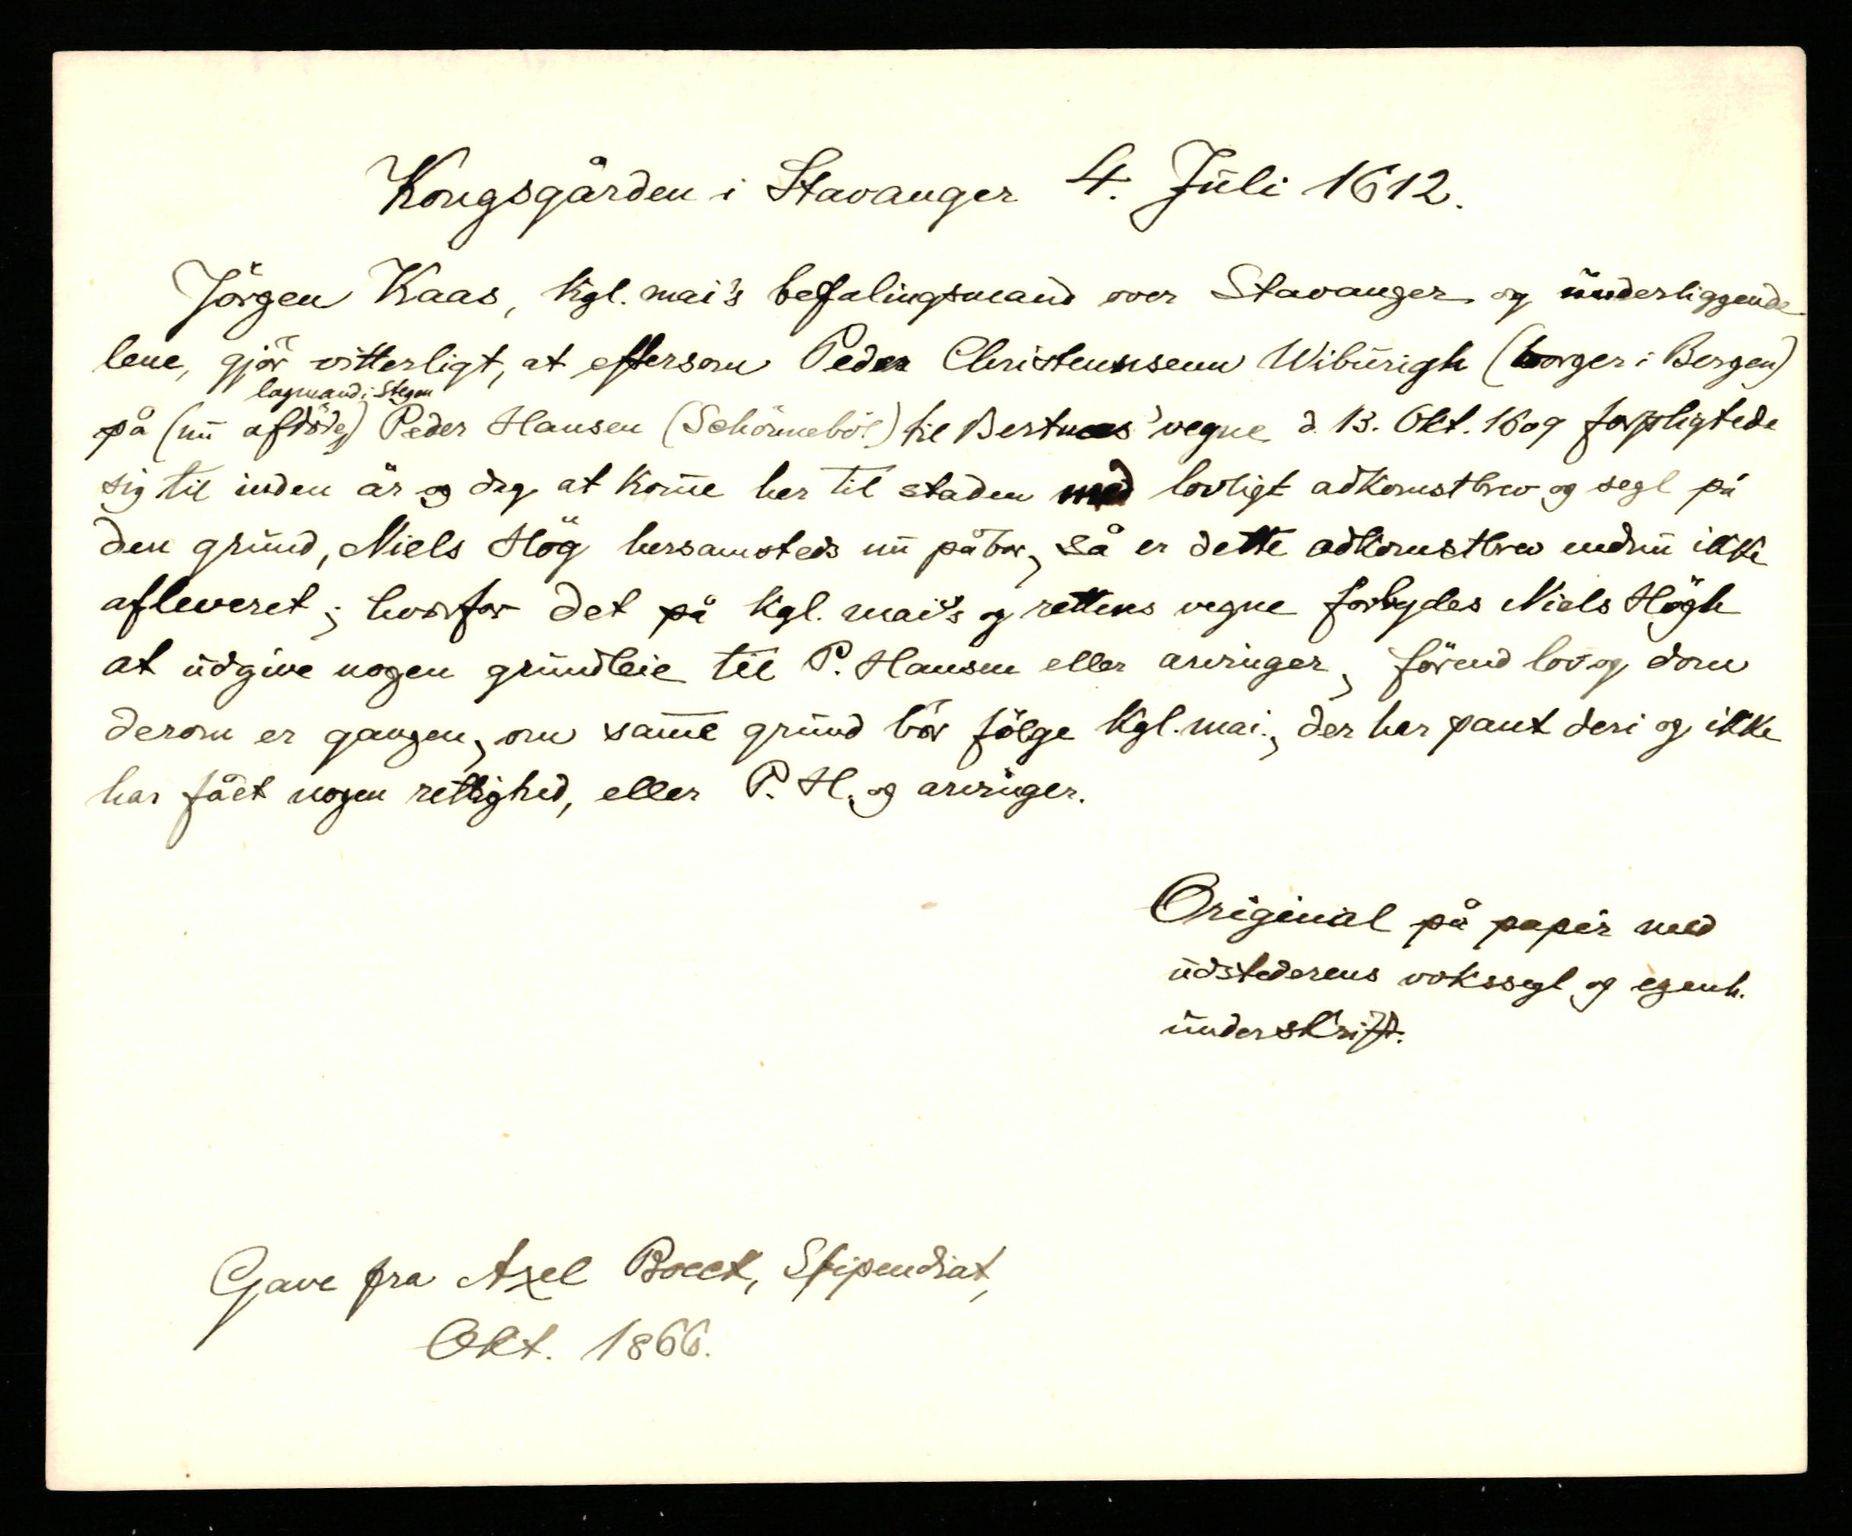 Kongsgården i Stavanger 4. Juli 1612.
Jörgen Kaas, kgl. mai's befalingsmand over Stavanger og underliggende
lene, gjör vitterligt, at eftersom Peder Christennsenn Wiburigh (borger i Bergen)
lagmand i Stegen
på (nu afdöde) Peder Hansen (Schönneböl) til Bertnæs' vegne d. 13. Okt. 1609 forpligtede
sig til inden år og dag at kom̅e her til staden med lovligt adkomstbrev og segl på
den grund, Niels Hög hersamsteds nu påbor, så er dette adkomstbrev endnu ikke
afleveret; hvorfor det på kgl. mai's og rettens vegne forbydes Niels Högh
at udgive nogen grundleie til P. Hansen eller arvinger, förend lov og dom
derom er gangen, om sam̅e grund bör fölge kgl. mai., der har pant deri og ikke
har fået nogen rettighed, eller P. H. og arvinger.
Original på papir med
udstederens vokssegl og egenh.
underskrift.
Gave fra Axel Boeck, Stipendiat,
Okt. 1866.